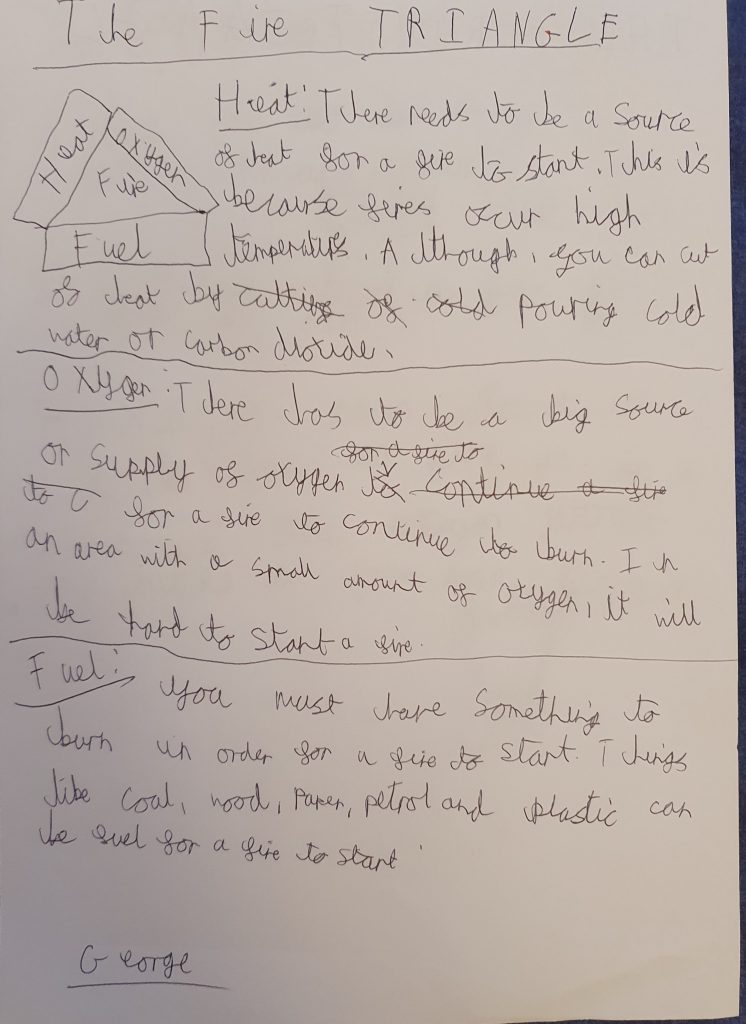 The Fire TRIANGLE
Heat
Oxygen
Fire
Fuel
Heat: There needs to be a source
of heat for a fire to start. This is
because fires ocur high
temperaturs. Although, you can cut
of heat by cutting of cold pouring cold
water or carbon dioxide.
Oxygen: There has to be a big source
for a fire to
or supply of oxygen to continue a fire
to c for a fire to continue to burn. In
an area with a small amount of oxygen, it will
be hard to start a fire.
Fuel: you must have something to
burn in order for a fire to start. Things
like coal, wood, paper, petrol and plastic can
be fuel for a fire to start
George